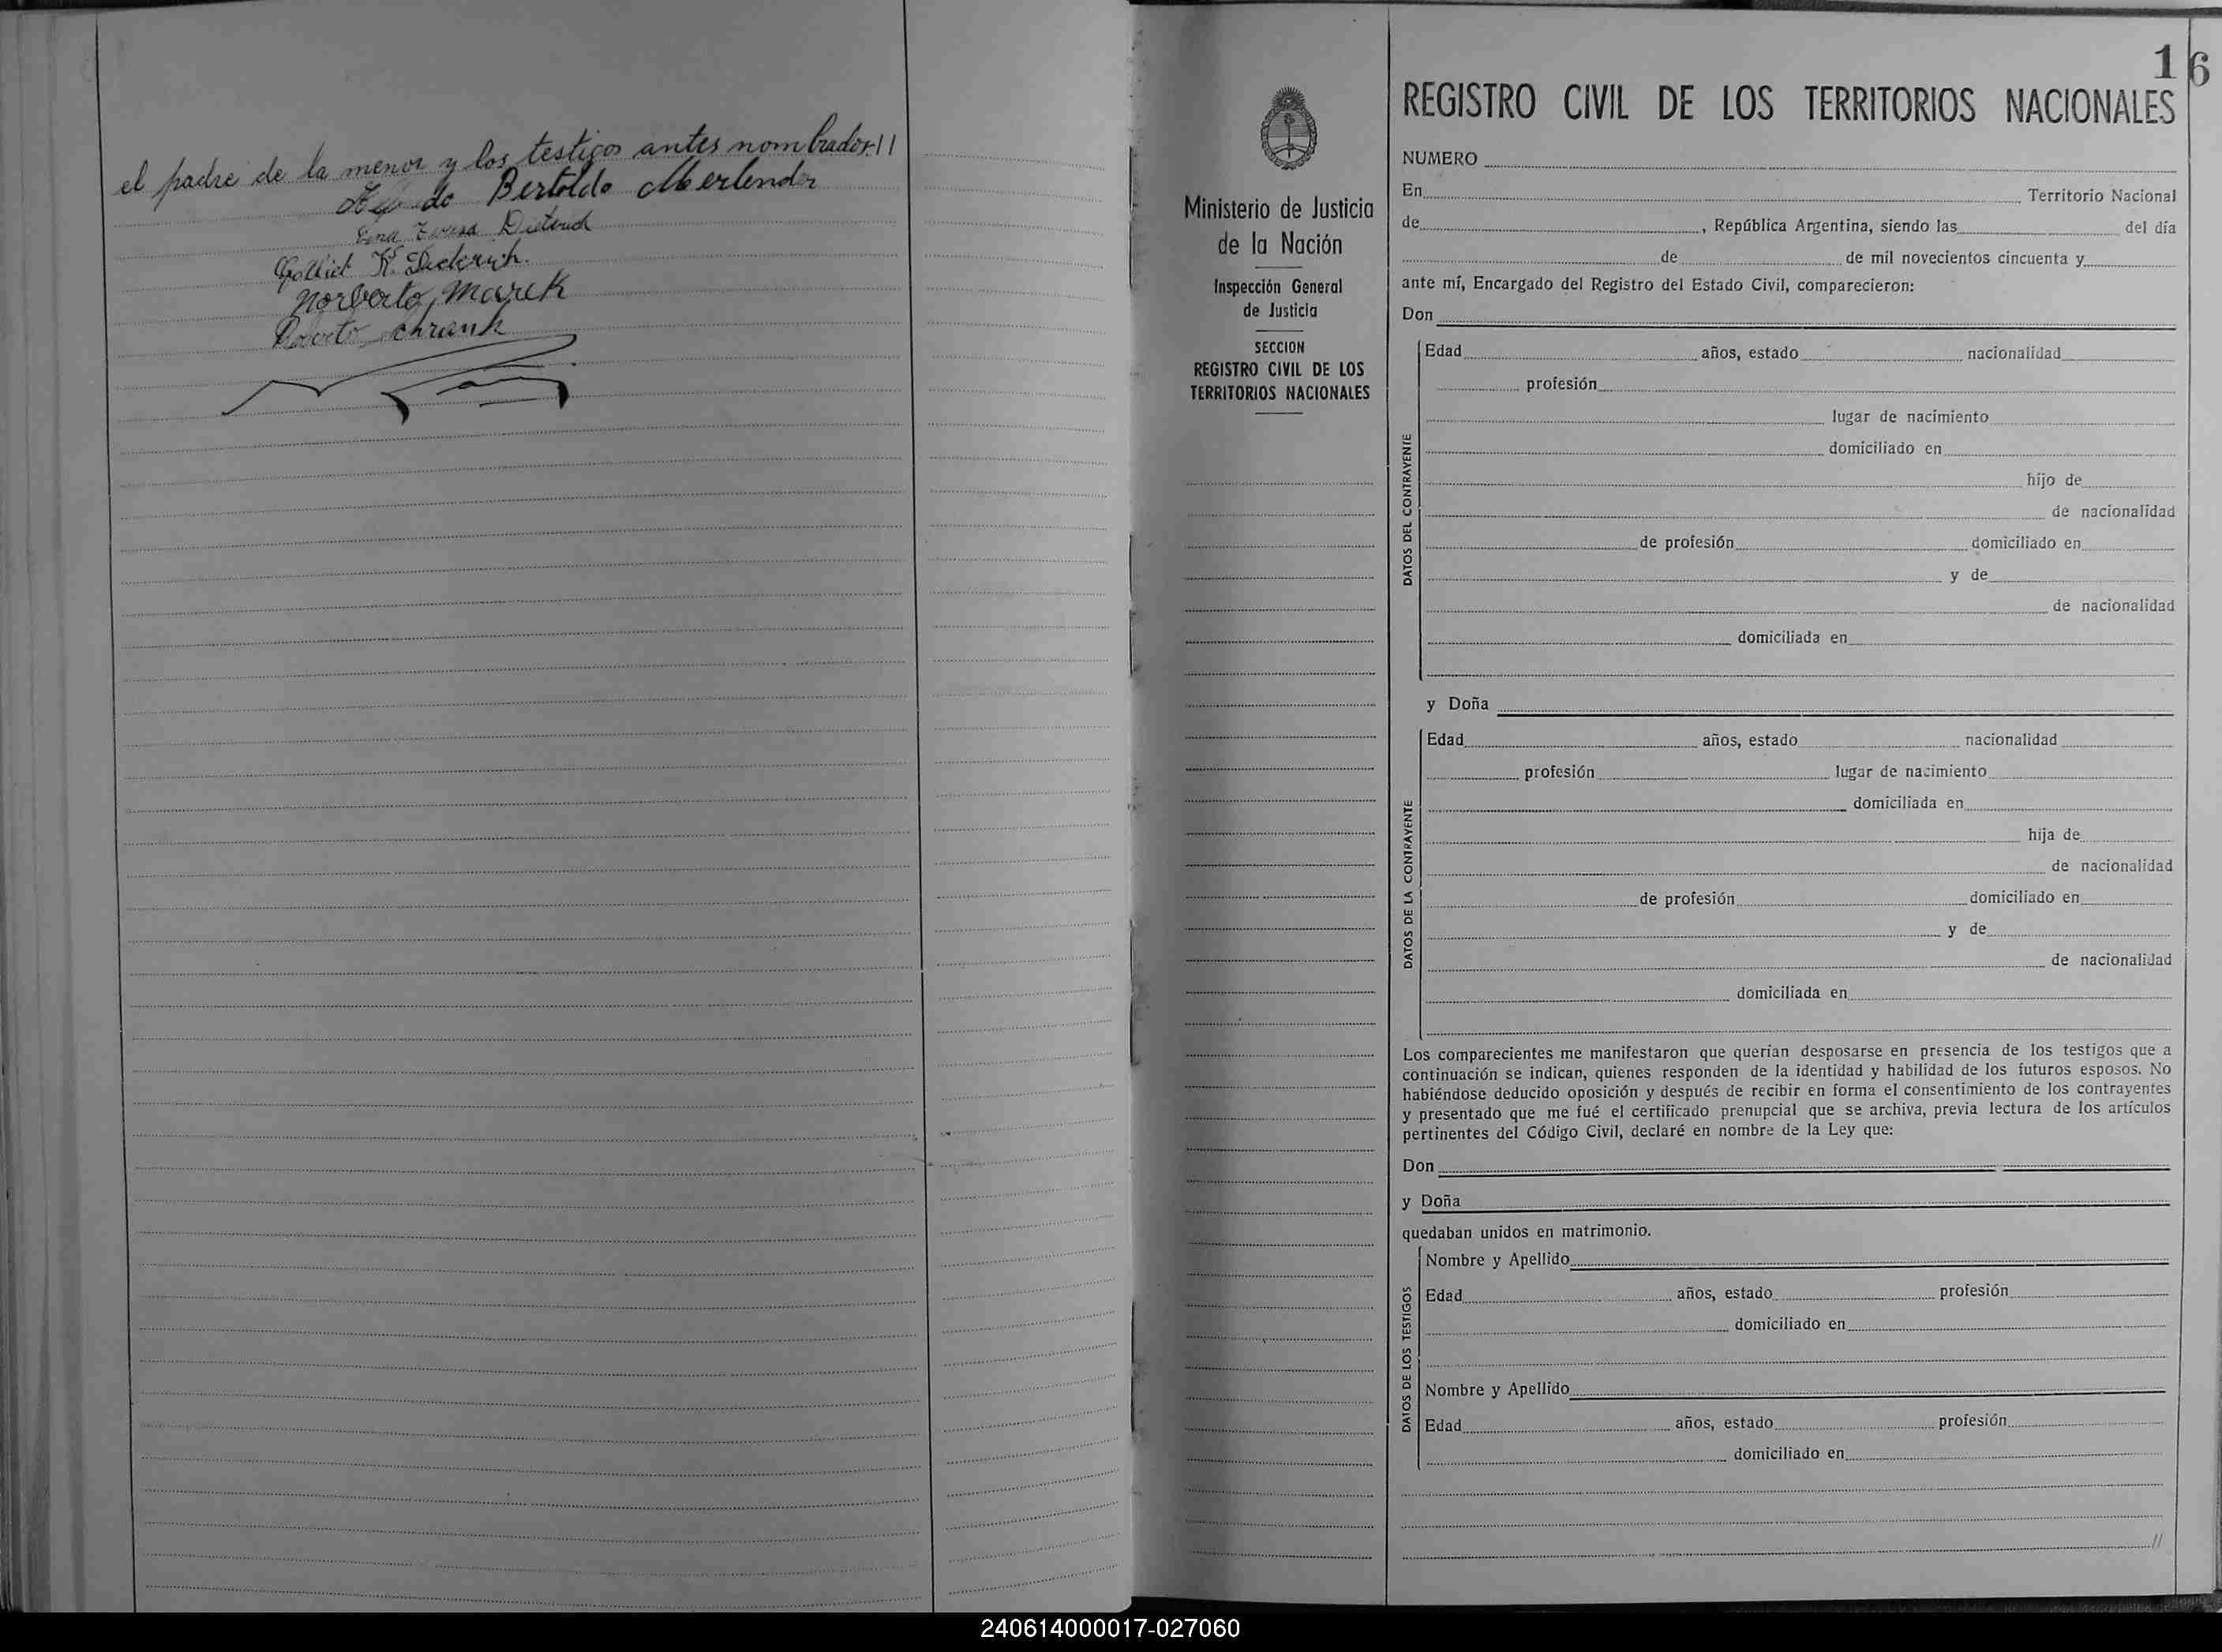 el padre de la menor y los testigos antes nombrados.||
Bertoldo Merlender
Gottlieb K. Diederich.
Norberto Marek
Roberto Schrank
16
REGISTRO CIVIL DE LOS TERRITORIOS NACIONALES
Ministerio de Justicia
de la Nación
Inspección General
de Justicia
SECCION
REGISTRO CIVIL DE LOS
TERRITORIOS NACIONALES
NUMERO
En Territorio Nacional
de , República Argentina, siendo las del día
de de mil novecientos cincuenta y
ante mí, Encargado del Registro del Estado Civil, comparecieron:
Don
DATOS DEL CONTRAYENTE
Edad años, estado nacionalidad
profesión
lugar de nacimiento
domiciliado en
hijo de
de nacionalidad
de profesión domiciliado en
y de
de nacionalidad
domiciliada en
y Doña
DATOS DE LA CONTRAYENTE
Edad años, estado nacionalidad
profesión lugar de nacimiento
domiciliada en
hija de
de nacionalidad
de profesión domiciliado en
y de
de nacionalidad
domiciliada en
Los comparecientes me manifestaron que querían desposarse en presencia de los testigos que a
continuación se indican, quienes responden de la identidad y habilidad de los futuros esposos. No
habiéndose deducido oposición y después de recibir en forma el consentimiento de los contrayentes
y presentado que me fué el certificado prenupcial que se archiva, previa lectura de los artículos
pertinentes del Código Civil, declaré en nombre de la Ley que:
Don
y Doña
quedaban unidos en matrimonio.
DATOS DE LOS TESTIGOS
Nombre y Apellido
Edad años, estado profesión
domiciliado en
Nombre y Apellido
Edad años, estado profesión
domiciliado en
//
240614000017-027060